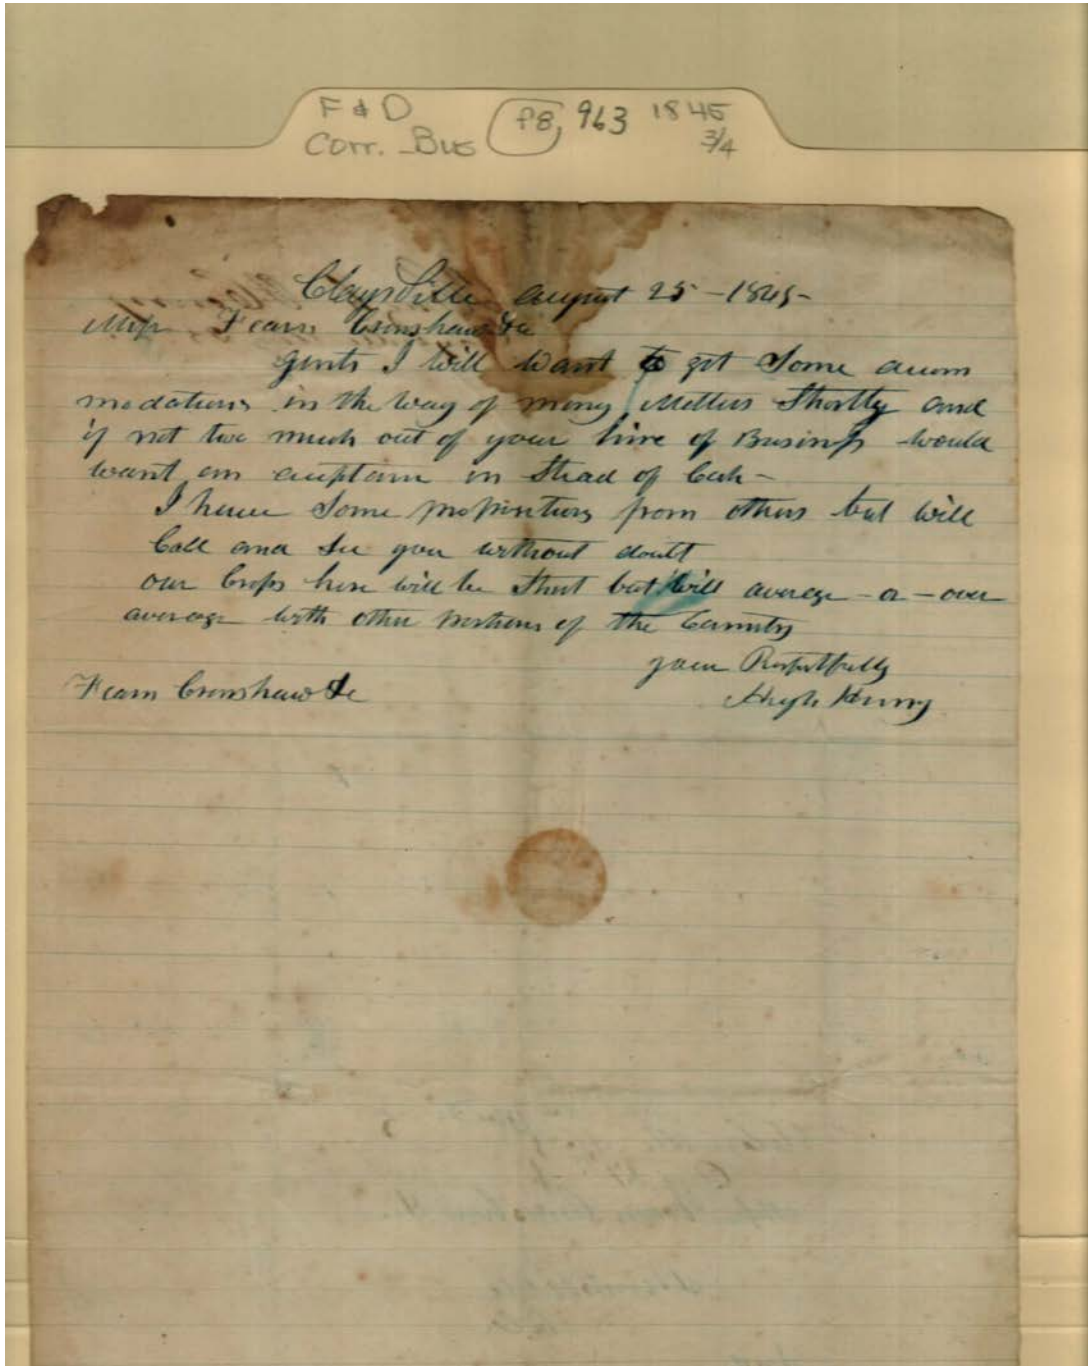 F & D
Corr. Bus
P8, 963 1845
3/4
Claysville august 25 - 1845 -
Mess Fearn Crenshaw & Co
Gents I will want to get Some accom
modations in the way of mony Matters Shortly and
if not two much out of your line of Business would
want an acceptance in Stead of Cash -
I have Some propositions from others but will
Call and See you without doubt
our Crops here will be Short but will average - or - over
average with other portions of the Country
your Respectfully
Hugh Henry
Fearn Crenshaw & Co